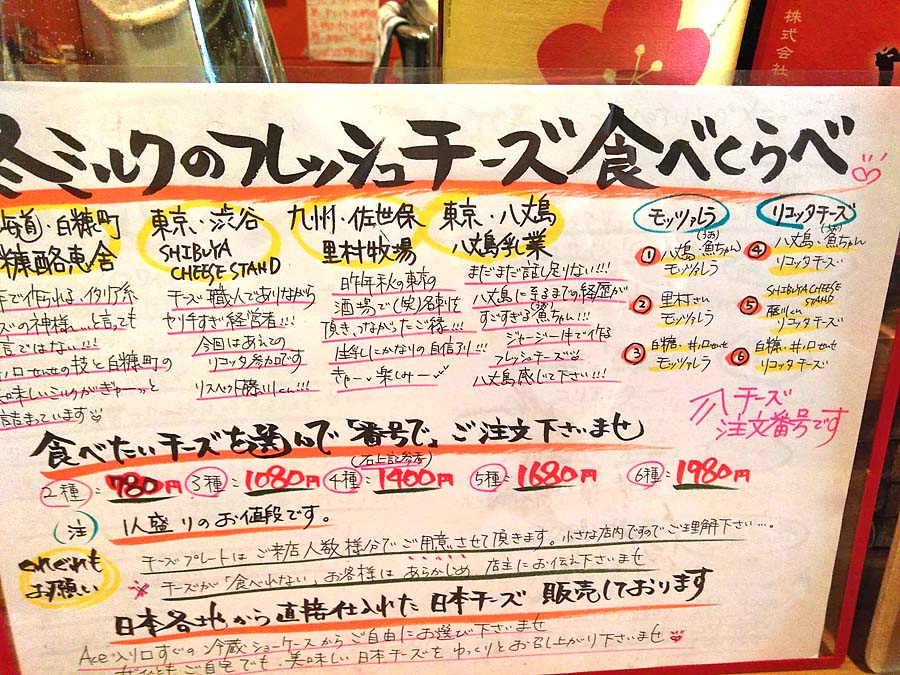 株式会社
冬ミルクのフレッシュチーズ食べくらべ
海道・白糠町
糠酪恵舎
東京・渋谷
SHIBUYA
CHEESE STAND
九州・佐世保
里村牧場
東京・八丈島
八丈島乳業
で作られる、イタリア系
ズの神様…と言っても
言ではない!!!
の技と白糠町の
美味しいミルクがぎゃーっと
詰まっています
チーズ職人でありながら
ヤリチすぎ経営者!!!
今回はあえての
リコッタ参加です
リスペクト藤川くん!!!
昨年秋の東京の
酒場で(笑)名刺を
頂き、つながったご縁!!!
生乳にかなりの自信アリ!!!
きゃー楽しみー
まだまだ話し足りない!!!
八丈島に至るまでの経歴が
すごすぎる魚ちゃん!!!
ジャージー牛で作る
フレッシュチーズ
八丈島感じて下さい!!!
モッツァレラ
① 八丈島・魚ちゃん
モッツァレラ
② 里村さん
モッツァレラ
③ 白糠・井ノ口せせ
モッツァレラ
リコッタチーズ
④ 八丈島・魚ちゃん
リコッタチーズ
⑤ SHIBUYA CHEESE
STAND
藤川くん
リコッタチーズ
⑥ 白糠・井ノ口せせ
リコッタチーズ
チーズ
注文番号です
食べたいチーズを選んで「番号で」ご注文下さいませ
(右上記参考)
2種:780円 3種:1080円 4種:1400円 5種:1680円 6種:1980円
(注) 1人盛りのお値段です。
くれぐれも
お願い
チーズプレートはご来店人数様分でご用意させて頂きます。小さな店内ですのでご理解下さい…。
※ チーズが「食べれない」お客様はあらかじめ店主にお伝え下さいませ
日本各地から直接仕入れた日本チーズ販売しております
Ace 入り口すぐの冷蔵ショーケースからご自由にお選び下さいませ
ご自宅でも、美味しい日本チーズをゆっくりとお召し上がり下さいませ